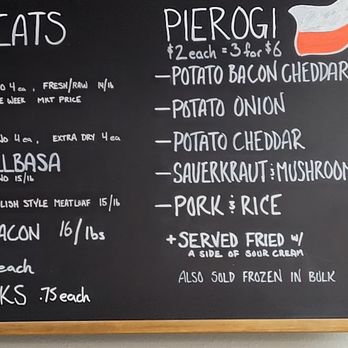 EATS
O 4 ea, FRESH/RAW 14/lb
E WEEK MKT PRICE
O 4 ea, EXTRA DRY 4 ea
LBASA
O 15/lb
LISH STYLE MEATLOAF 15/lb
ACON 16/lbs
each
KS .75 each
PIEROGI
$2 each = 3 for $6
-POTATO BACON CHEDDAR
-POTATO ONION
-POTATO CHEDDAR
-SAUERKRAUT & MUSHROOM
-PORK & RICE
+ SERVED FRIED w/
A SIDE OF SOUR CREAM
ALSO SOLD FROZEN IN BULK